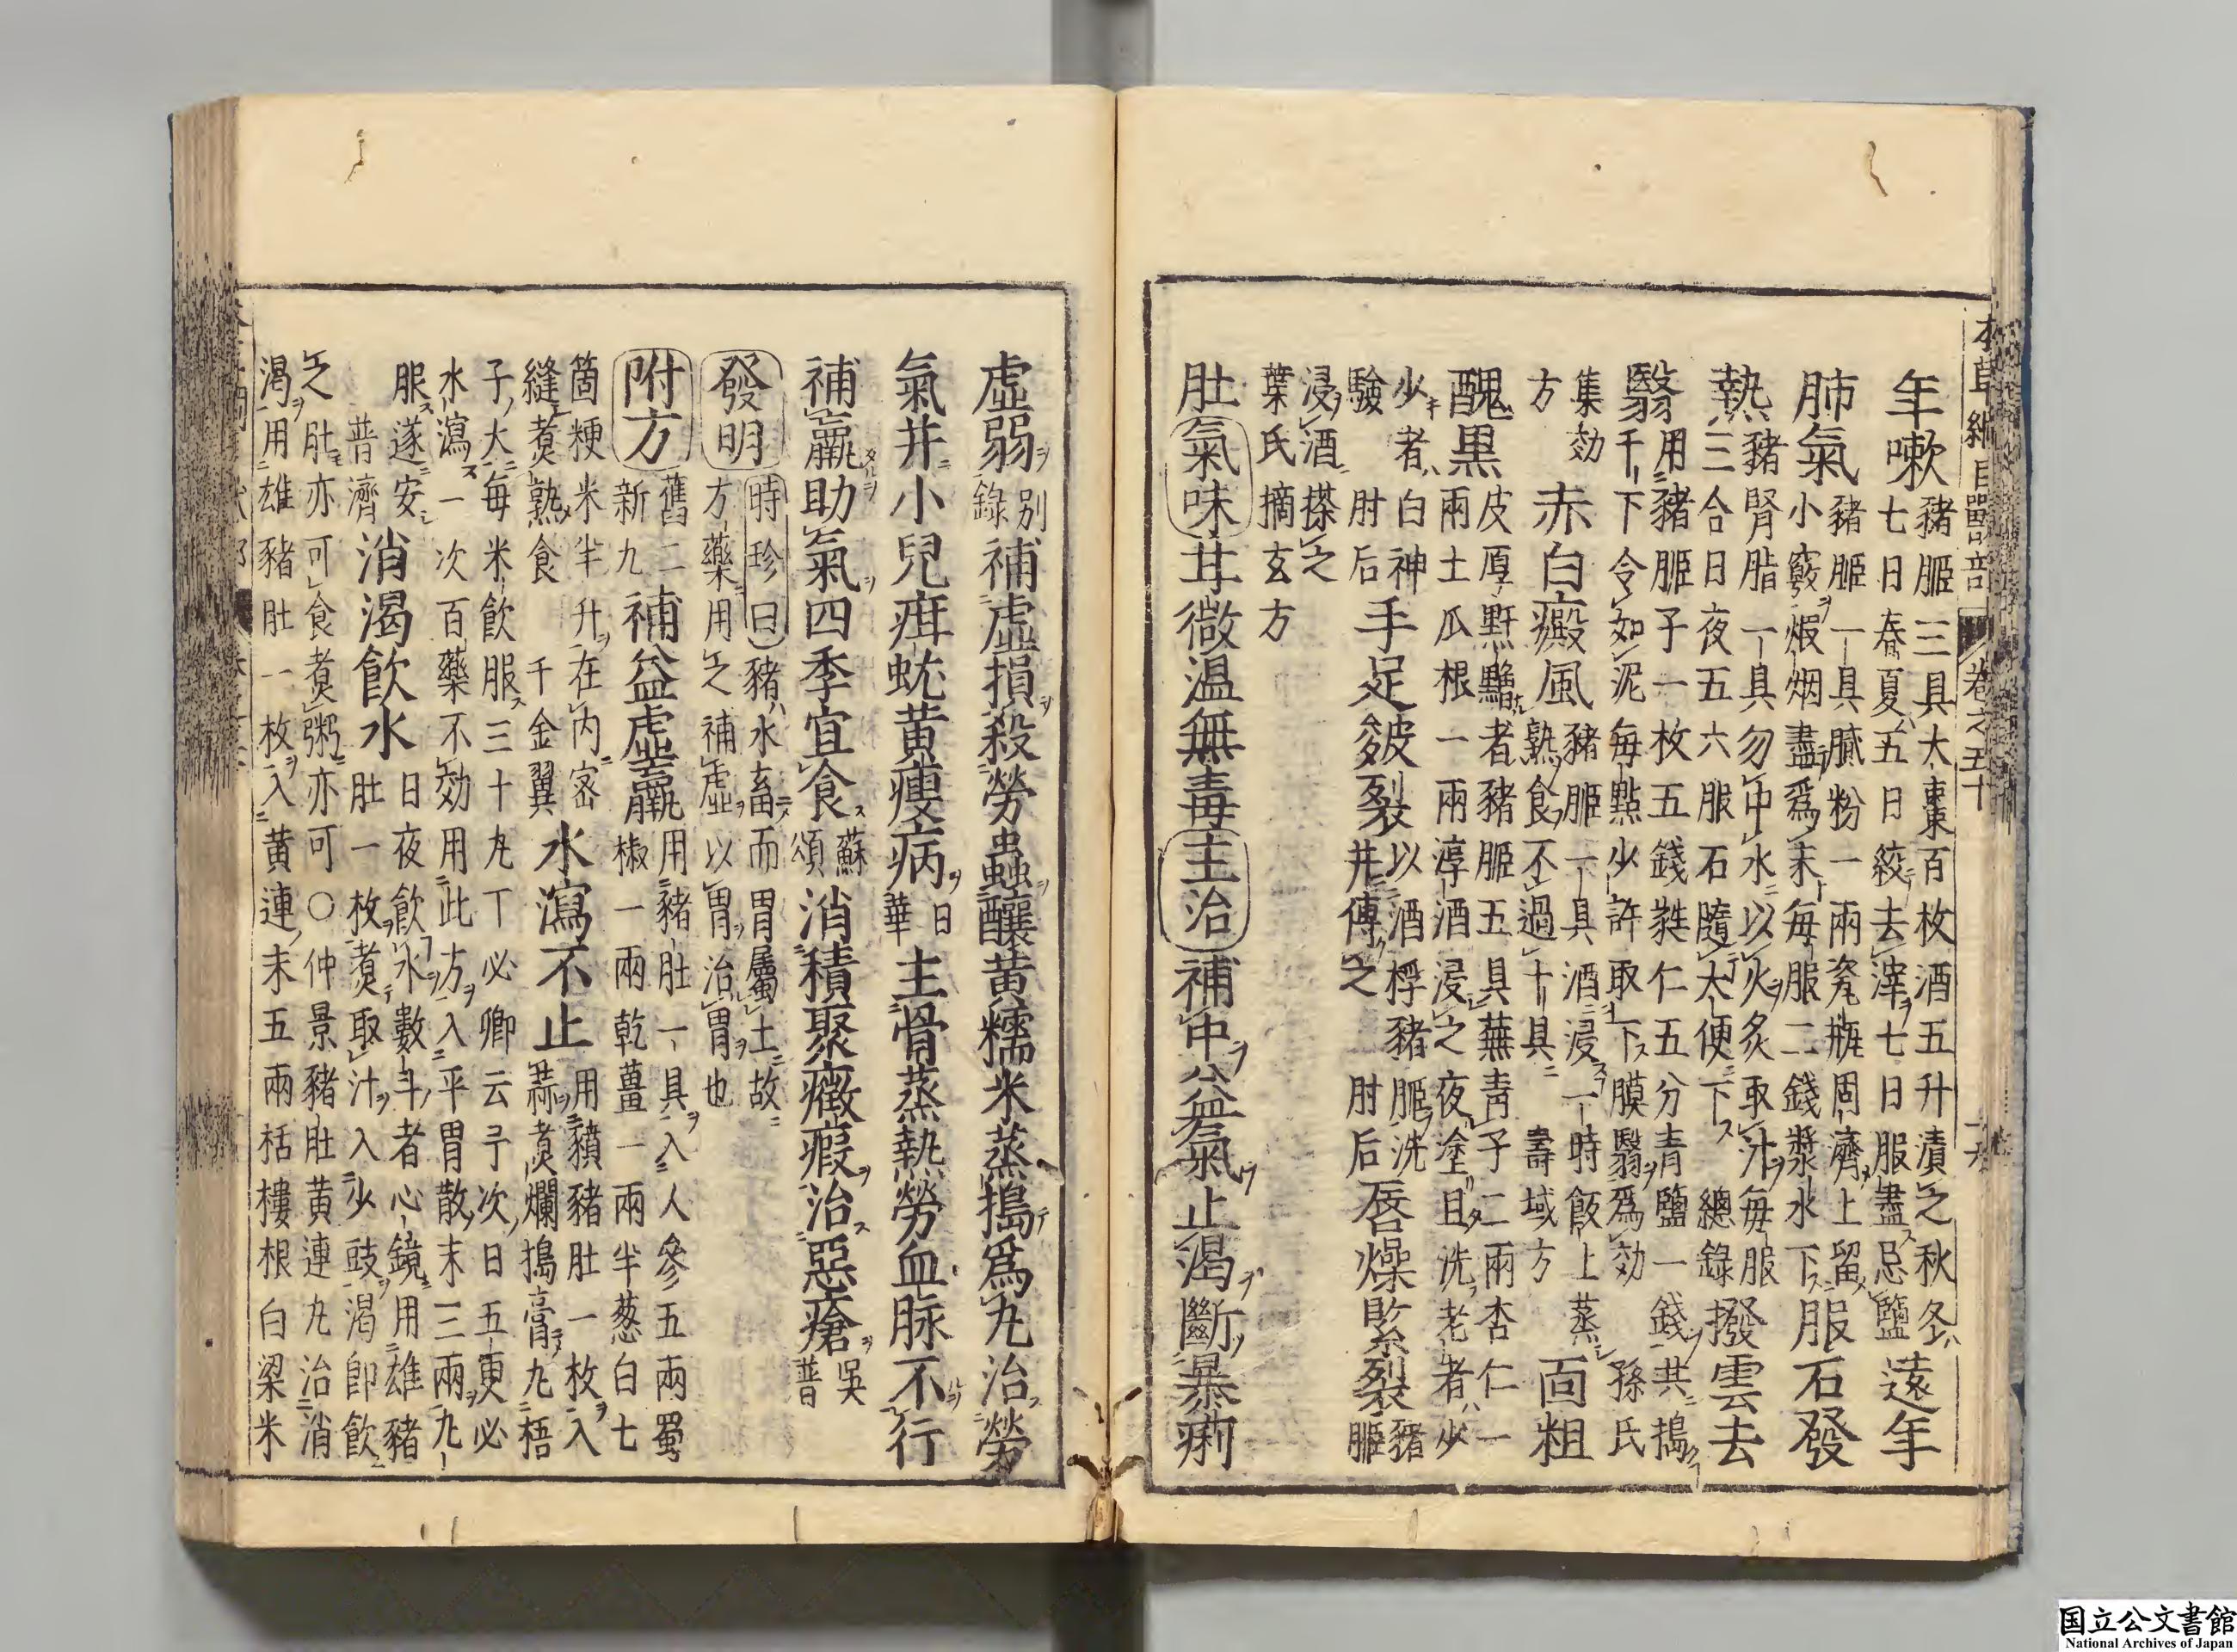 本草綱目獸部 卷之五十
年嗽
豬䏰三具大棗百枚酒五升漬之秋冬
七日春夏五日絞去滓七日服盡忌鹽
遠年
肺氣
豬䏰一具膩粉一兩瓷瓶固濟上留
小竅煅烟盡爲末每服二錢漿水下
服石發
熱
豬腎脂一具勿中水以火炙取汁每服
三合日夜五六服石隨大便下 總錄
撥雲去
翳
用豬䏰子一枚五錢蕤仁五分青鹽一錢共搗
千下令如泥每點少許取下膜翳爲効 孫氏
集効
方
赤白癜風
豬䏰一具酒浸一時飯上蒸
熟食不過十具 壽域方
面粗
醜黑
皮厚䵟黯者豬䏰五具蕪青子二兩杏仁一
兩土瓜根一兩淳酒浸之夜塗旦洗老者少
少者白神
驗 肘后
手足皴裂
以酒挼豬䏰洗
并傅之 肘后
唇燥緊裂
豬䏰
浸酒搽之
葉氏摘玄方
肚氣味甘微温無毒主治補中益氣止渴斷暴痢
虛弱
别
錄
補虛損殺勞蟲釀黄糯米蒸搗爲丸治勞
氣并小兒疳蚘黄瘦病
日
華
主骨蒸熱勞血脉不行
補羸助氣四季宜食
蘇
頌
消積聚癥瘕治惡瘡
吳
普
發明
時珍曰豬水畜而胃屬土故
方藥用之補虛以胃治胃也
附方
舊二
新九
補益虛羸
用豬肚一具入人參五兩蜀
椒一兩乾薑一兩半葱白七
箇粳米半升在内密
縫煑熟食 千金翼
水瀉不止
用豶豬肚一枚入
蒜煑爛搗膏丸梧
子大每米飲服三十丸丁必卿云予次日五更必
水瀉一次百藥不効用此方入平胃散末三兩丸
服遂安
普濟
消渴飲水
日夜飲水數斗者心鏡用雄豬
肚一枚煑取汁入少豉渴即飲
之肚亦可食煑粥亦可○仲景豬肚黄連丸治消
渴用雄豬肚一枚入黄連末五兩栝樓根白粱米
国立公文書館
National Archives of Japan